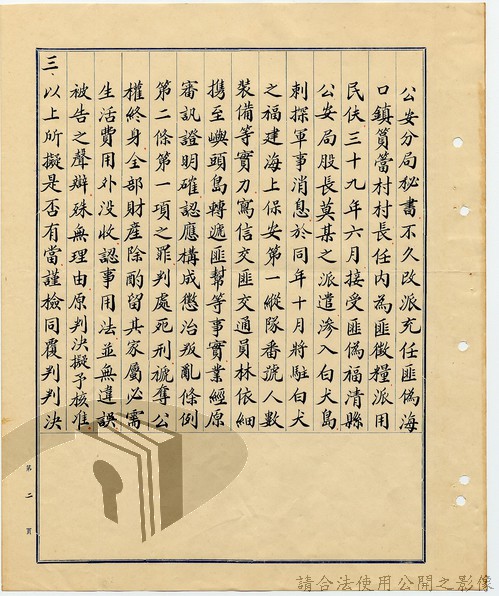 公安分局秘書不久改派充任匪偽海
口鎮篔簹村村長任內為匪徵糧派用
民伕三十九年六月接受匪偽福清縣
公安局股長莫某之派遣滲入白犬島
刺探軍事消息於同年十月將駐白犬
之福建海上保安第一縱隊番號人數
裝備等實刀寫信交匪交通員林依細
携至嶼頭島轉遞匪幫等事實業經原
審訊證明確認應構成懲治叛亂條例
第二條第一項之罪判處死刑褫奪公
權終身全部財產除酌留其家屬必需
生活費用外沒收認事用法並無違誤
被告之聲辯殊無理由原判決擬予核准
三、以上所擬是否有當謹檢同覆判判決
第二頁
請合法使用公開之影像